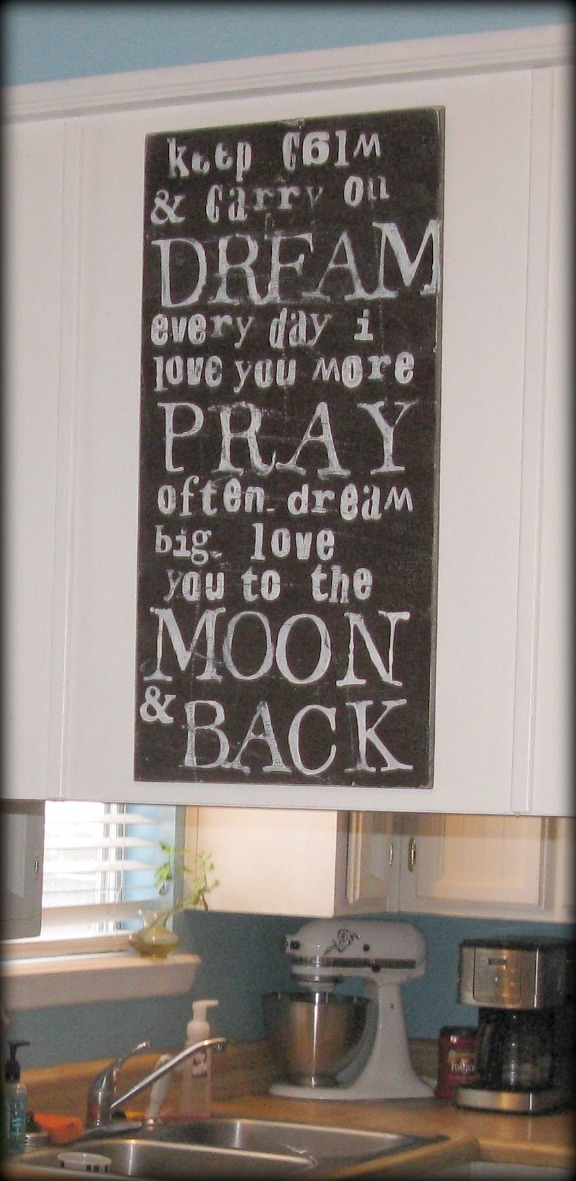 keep calm
& carry on
DREAM
every day i
love you more
PRAY
often. dream
big. love
you to the
MOON
& BACK
Folgers